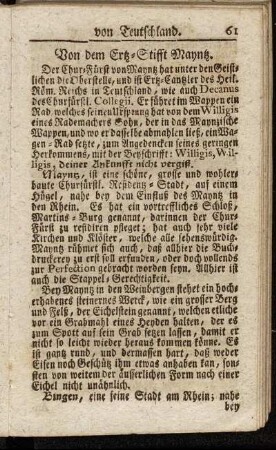 von Teutschland. 61
Von dem Ertz-Stifft Mayntz.
Der Chur-Fürst von Mayntz hat unter den Geist-
lichen die Oberstelle, und ist Ertz-Cantzler des Heil.
Röm. Reichs in Teutschland, wie auch Decanus
des Churfürstl. Collegii. Er führet im Wappen ein
Rad, welches seinen Ursprung hat von dem Willigis
eines Rademachers Sohn, der in das Mayntzische
Wappen, und wo er dasselbe abmahlen ließ, ein Wa-
gen-Rad setzte, zum Angedencken seines geringen
Herkommens, mit der Beyschrifft: Willigis, Wil-
ligis, Deiner Ankunfft nicht vergiß.
Mayntz, ist eine schöne, grosse und wohlers
baute Churfürstl. Residentz-Stadt, auf einem
Hügel, nahe bey dem Einfluß des Mayns in
den Rhein. Es hat ein vortreffliches Schloß,
Martins-Burg genannt, darinnen der Chur-
Fürst zu residiren pfleget; hat auch sehr viele
Kirchen und Klöster, welche alle sehenswürdig.
Mayntz rühmet sich auch, daß allhier die Buch-
druckerey zu erst soll erfunden, oder doch vollends
zur Perfection gebracht worden seyn. Allhier ist
auch die Stappel-Gerechtigkeit.
Bey Mayntz in den Weinbergen stehet ein hoch-
erhabenes steinernes Werck, wie ein grosser Berg
und Felß, der Eichelstein genannt, welchen etliche
vor ein Grabmahl eines Heyden halten, der es
zum Spott auf sein Grab setzen lassen, damit er
nicht so leicht wieder heraus kommen könne. Es
ist gantz rund, und dermassen hart, daß weder
Eisen noch Geschütz ihm etwas anhaben kan, son-
sten von weitem der äusserlichen Form nach einer
Eichel nicht unähnlich.
Bingen, eine feine Stadt am Rhein; nahe
bey